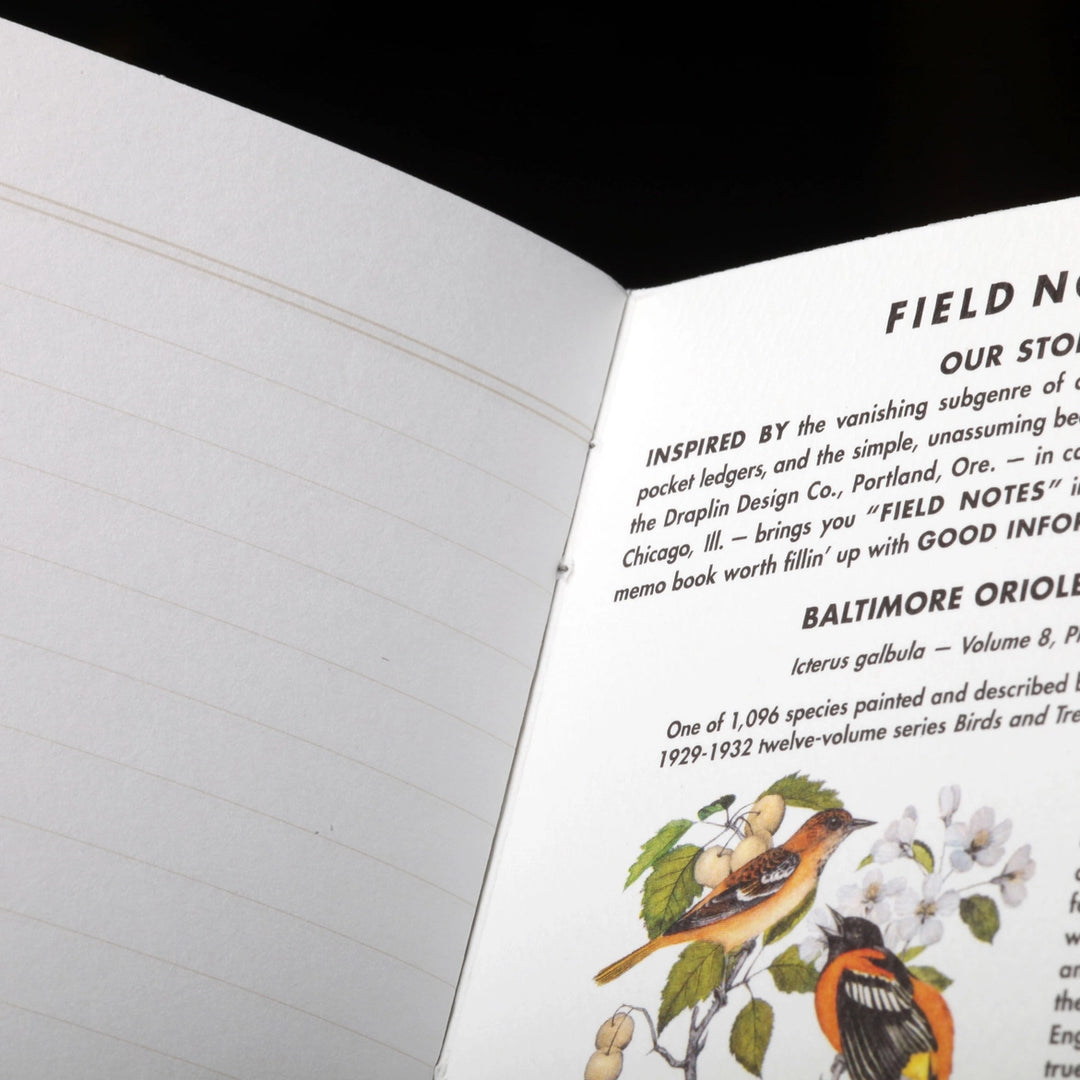 FIELD
OUR
INSPIRED BY the vanishing subgenre of
pocket ledgers, and the simple, unassuming
the Draplin Design Co., Portland, Ore. — in
Chicago, Ill. — brings you “FIELD NOTES”
memo book worth fillin’ up with GOOD
BALTIMORE ORIOLE
Icterus galbula — Volume 8,
One of 1,096 species painted and described
1929-1932 twelve-volume series Birds and
the